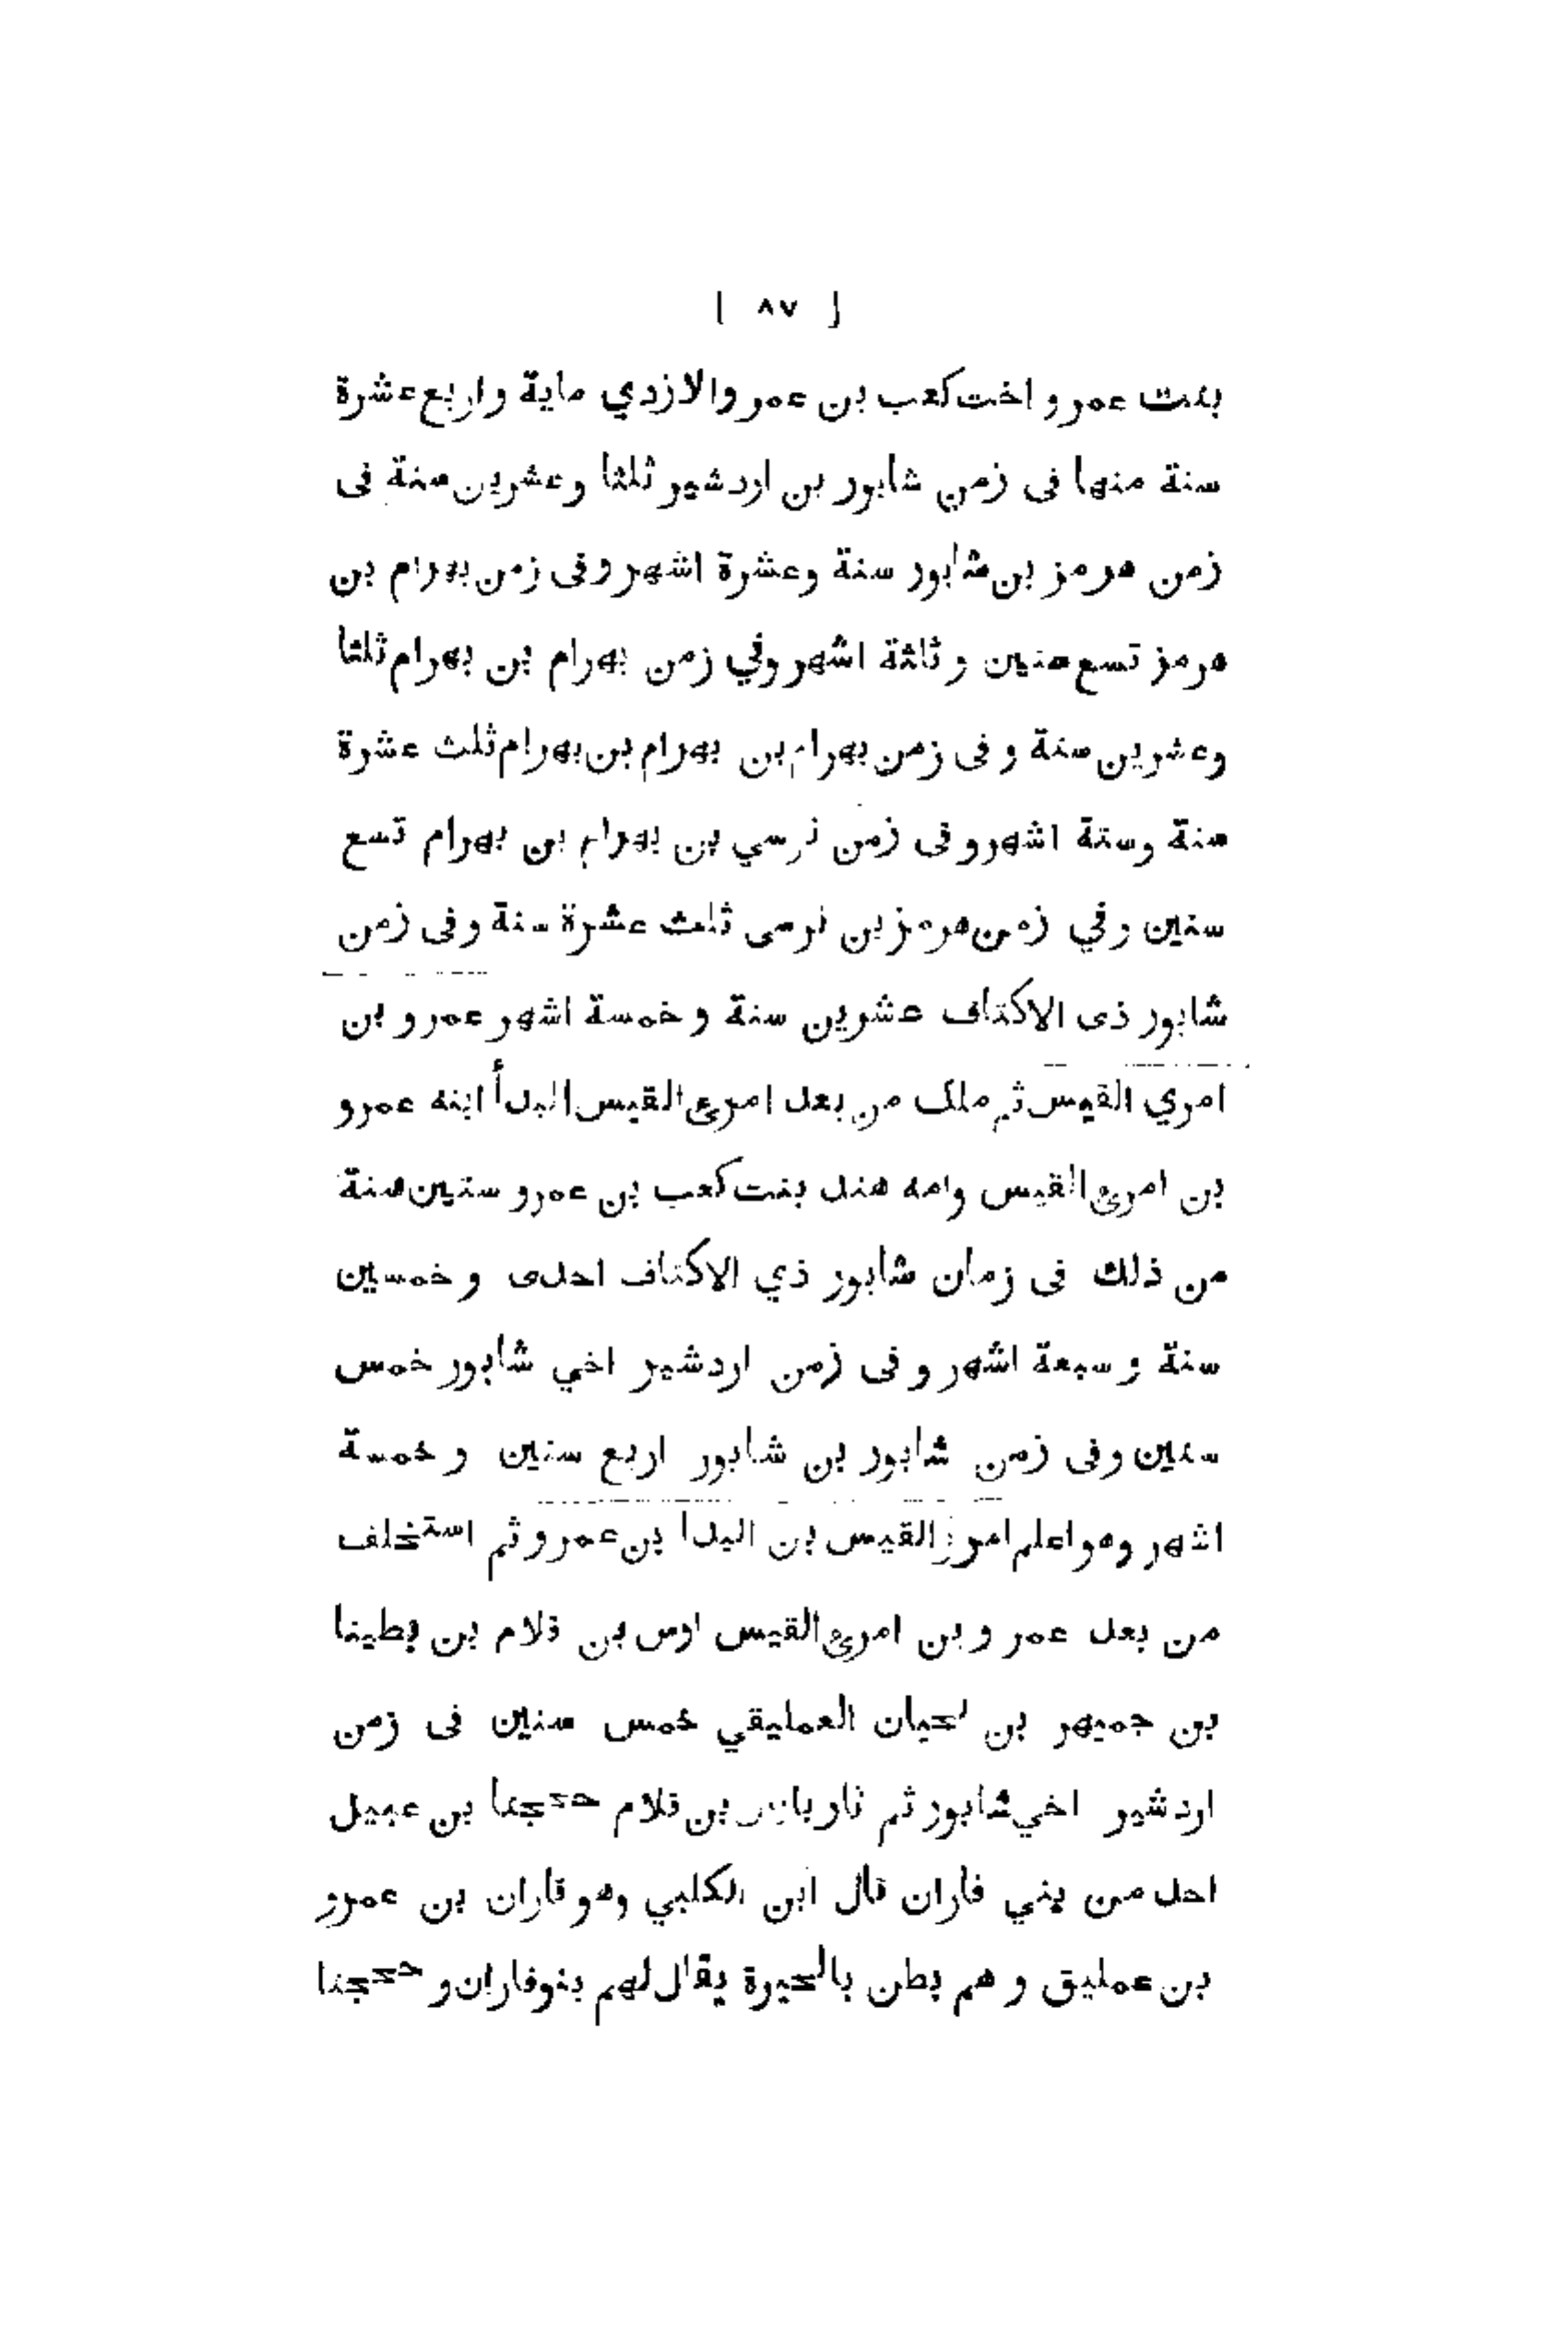 [ ٨٧ ]
بنت عمرو اخت كعب بن عمرو الازدي ماية واربع عشرة
سنة منها فى زمن شابور بن اردشير ثلثا وعشرين سنة فى
زمن هرمز بن شابور سنة وعشرة اشهر وفى زمن بهرام بن
هرمز تسع سنين وثلثة اشهر وفي زمن بهرام بن بهرام ثلثا
وعشرين سنة وفى زمن بهرام بن بهرام بن بهرام ثلث عشرة
سنة وستة اشهر وفى زمن نرسي بن بهرام بن بهرام تسع
سنين وفي زمن هرمز بن نرسى ثلث عشرة سنة وفى زمن
شابور ذى الاكتاف عشرين سنة وخمسة اشهر عمرو بن
امري القيس ثم ملك من بعد امرئ القيس البدأ ابنه عمرو
بن امرئ القيس وامه هند بنت كعب بن عمرو ستين سنة
من ذلك فى زمان شابور ذي الاكتاف احدى وخمسين
سنة وسبعة اشهر وفى زمن اردشير اخي شابور خمس
سنين وفى زمن شابور بن شابور اربع سنين وخمسة
اشهر وهو اعلم القيس بن البدا بن عمرو ثم استخلف
من بعد عمرو بن امرئ القيس اوس بن قلام بن بطينا
بن جميهر بن لحيان العمليقي خمس سنين فى زمن
اردشير اخي شابور ثم ثار بن قلام حججنا بن عبيل
احد من بني فاران قال ابن الكلبي وهو فاران بن عمرو
بن عمليق وهم بطن بالحيرة يقال لهم بنو فاران و حججنا